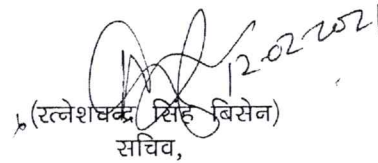 12.02.202
(रत्नेशचन्द्र सिंह बिसेन)
सचिव,